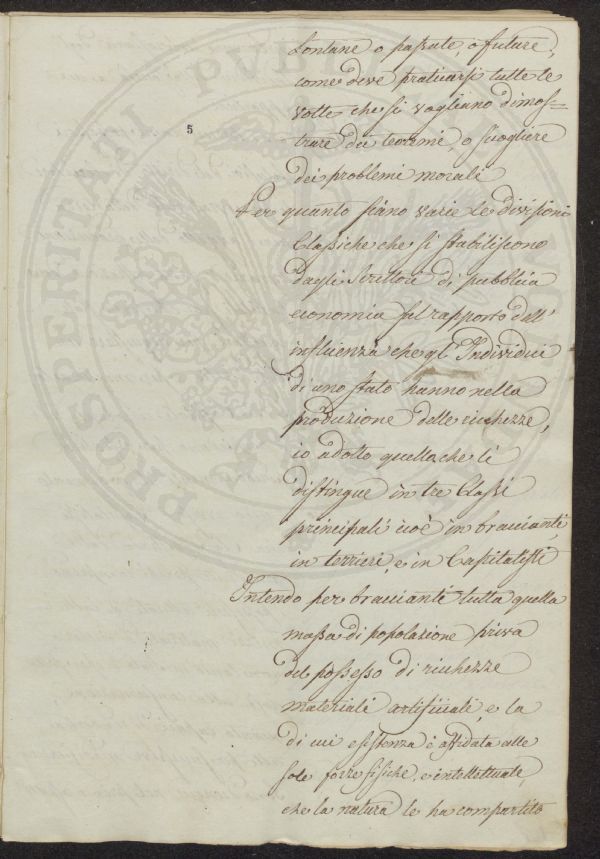 lontane o passate, o future,
come deve praticarsi tutte le
volte che si vogliano dimos=
trare dei teoremi, o sciogliere
dei problemi morali
5
Per quanto siano varie le divisioni
Classiche che si stabiliscono
dagli Scrittori di pubblica
economia sul rapporto dell'
influenza che gl' Individui
di uno stato hanno nella
produzione delle ricchezze,
io adotto quella che li
distingue in tre Classi
principali cioè in braccianti,
in terrieri, e in Capitalisti
Intendo per braccianti tutta quella
massa di popolazione priva
del possesso di ricchezze
materiali artificiali, e la
di cui esistenza è affidata alle
sole forze fisiche, e intellettuali,
che la natura le ha compartito
PROSPERITATI PVBL